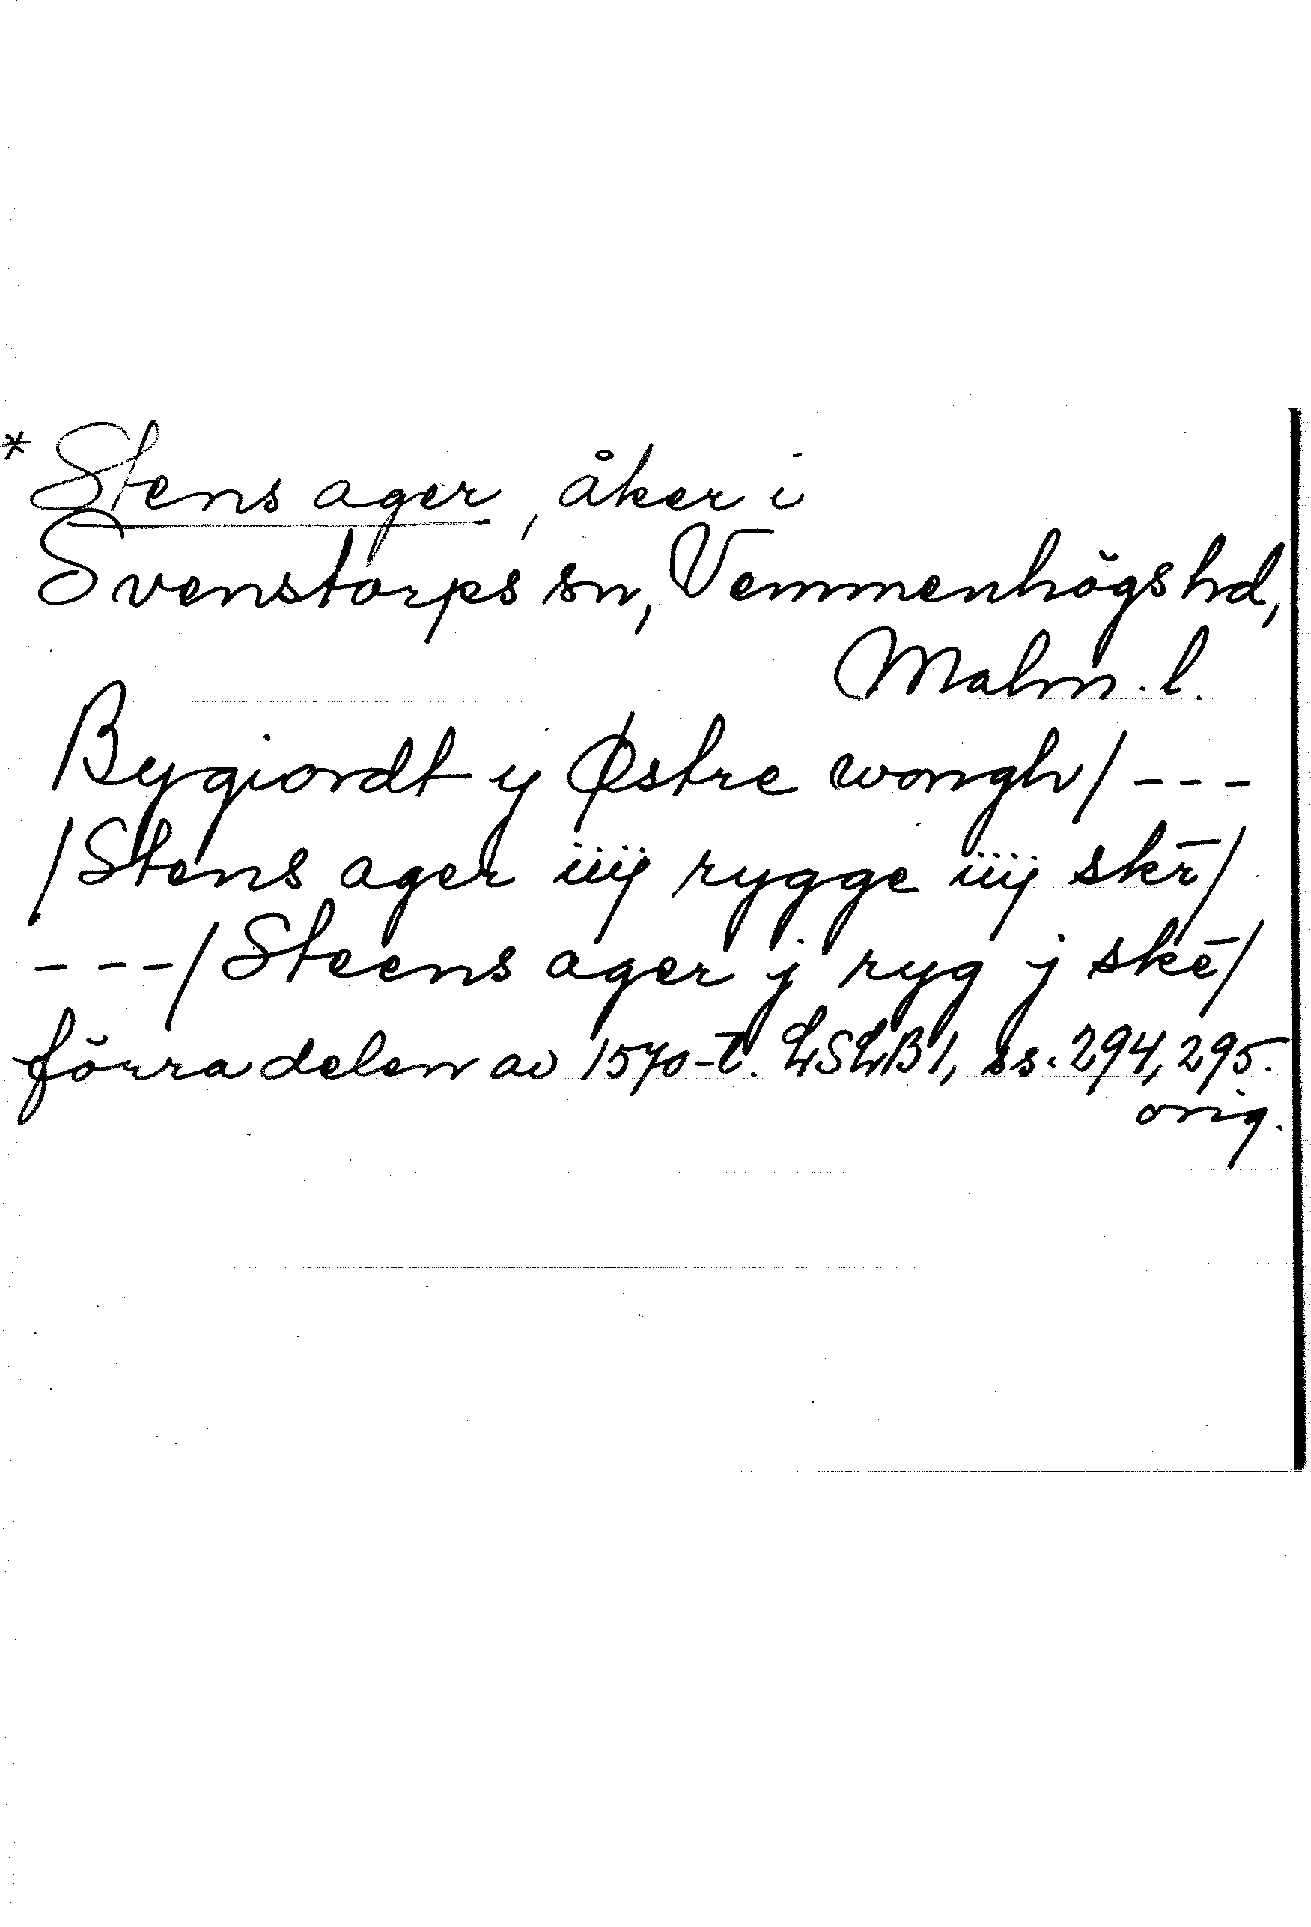 *Stens ager, åker i
Svenstorps sn, Vemmenhögs hd,
Malm. l.
Bygiordt y Østre wongh/ ---
/Stens ager iiij rygge iiij skr̄/
---/Steens ager j ryg j skē/
förra delen av 1570-t. LSLB 1, ss. 294, 295.
orig.